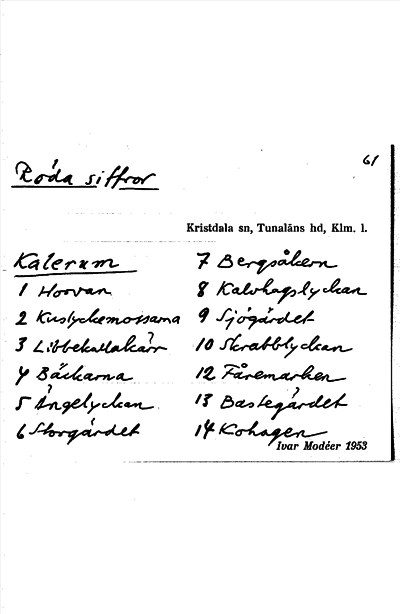 61
Röda siffror
Kristdala sn, Tunaläns hd, Klm. l.
Kalerum
1 Horvan
2 Kuslyckemossarna
3 Libbekallakärr
4 Bäckarna
5 Ängelyckan
6 Storgärdet
7 Bergsåkern
8 Kalvhagslyckan
9 Sjögärdet
10 Skrabblyckan
12 Fåremarken
13 Bastegärdet
14 Kohagen
Ivar Modéer 1953